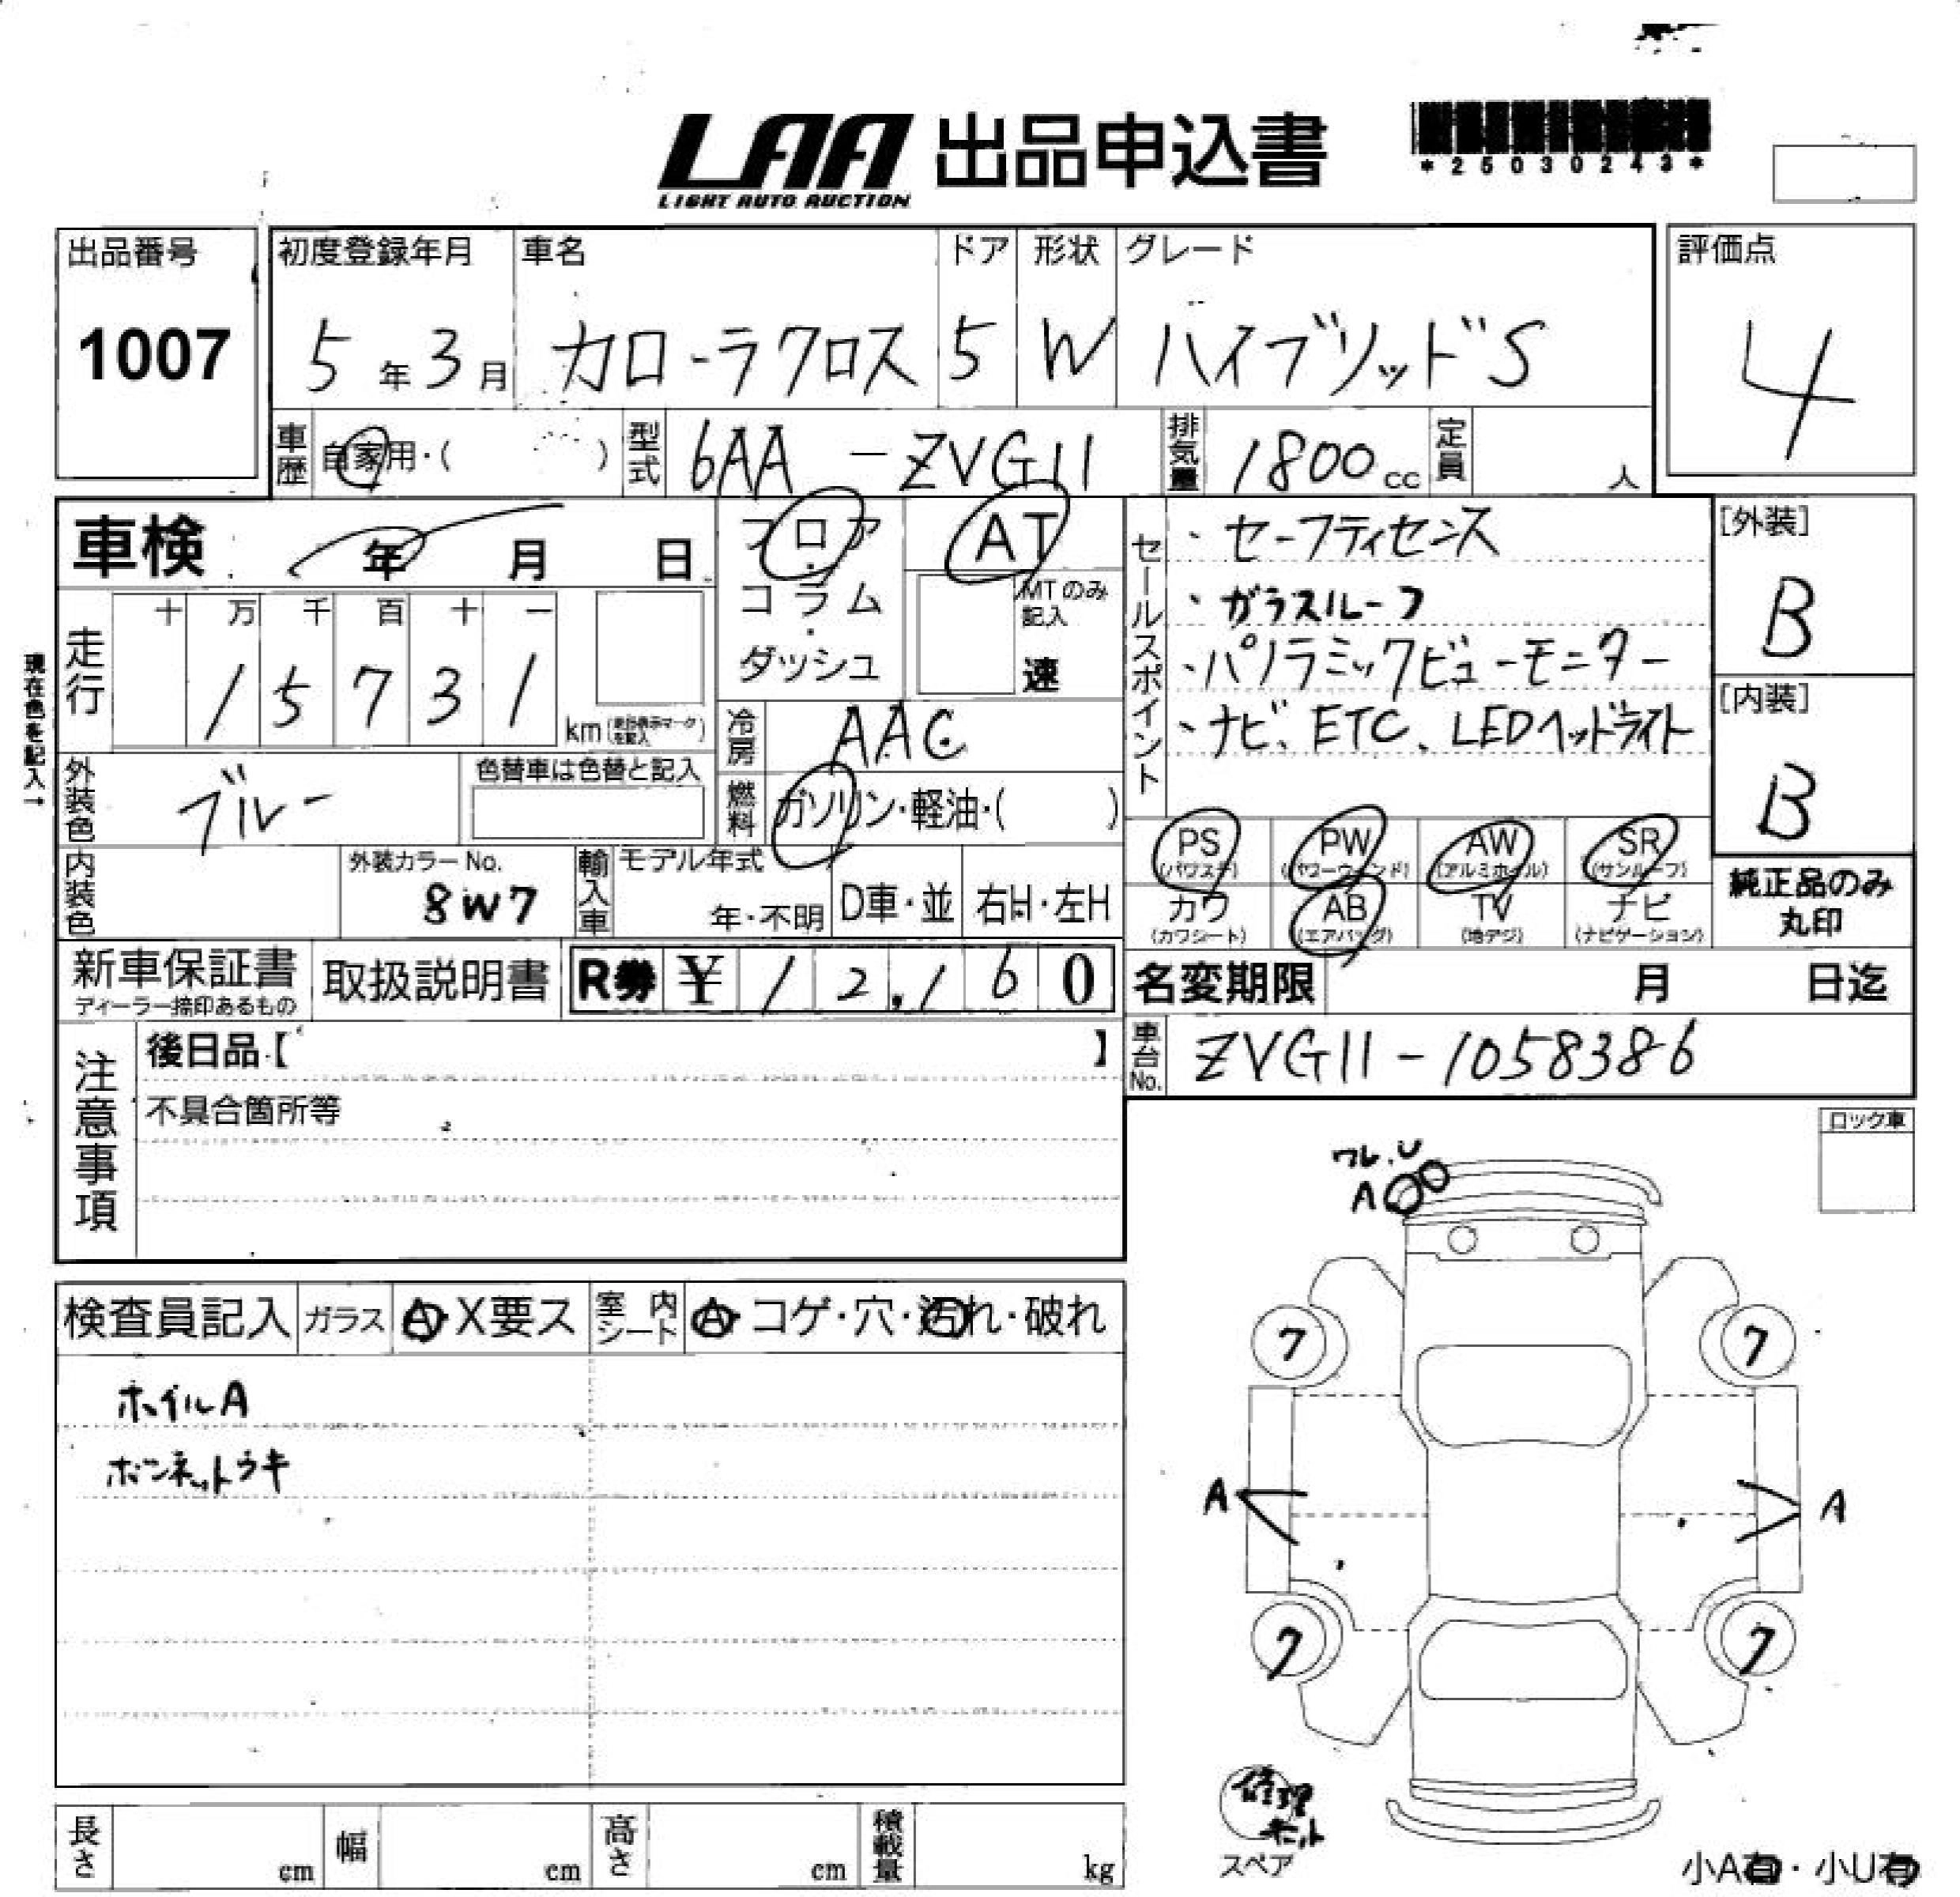 LAA 出品申込書
LIGHT AUTO AUCTION
*25030243*
出品番号
1007
初度登録年月
5年3月
車名
カローラクロス
ドア
5
形状
W
グレード
ハイブリッドS
評価点
4
車歴
自家用・( )
型式
6AA-ZVG11
排気量
1800cc
定員
人
車検 年 月 日
フロア・コラム・ダッシュ
AT
MTのみ記入
速
セールスポイント
・セーフティセンス
・ガラスルーフ
・パノラミックビューモニター
・ナビ、ETC、LEDヘッドライト
[外装]
B
[内装]
B
現在色を記入→
走行
十 万 千 百 十 一
1 5 7 3 1
km
冷房
AAC
外装色
ブルー
色替車は色替と記入
燃料
ガソリン・軽油・( )
PS
(パワステ)
PW
(パワーウィンド)
AW
(アルミホイル)
SR
(サンルーフ)
カワ
(カワシート)
AB
(エアバッグ)
TV
(地デジ)
ナビ
(ナビゲーション)
純正品のみ
丸印
内装色
外装カラーNo.
8W7
輸入車
モデル年式
年・不明
D車・並
右H・左H
新車保証書
ディーラー捺印あるもの
取扱説明書
R券 ¥12,160
名変期限 月 日迄
車台No.
ZVG11-1058386
注意事項
後日品【 】
不具合箇所等
ロック車
ワレ.U
A
検査員記入
ガラス
A・X要ス
室内シート
A・コゲ・穴・汚れ・破れ
ホイルA
ボンネットウキ
7
7
A
A
7
7
修理
キット
スペア
長さ
cm
幅
cm
高さ
cm
積載量
kg
小A有・小U有